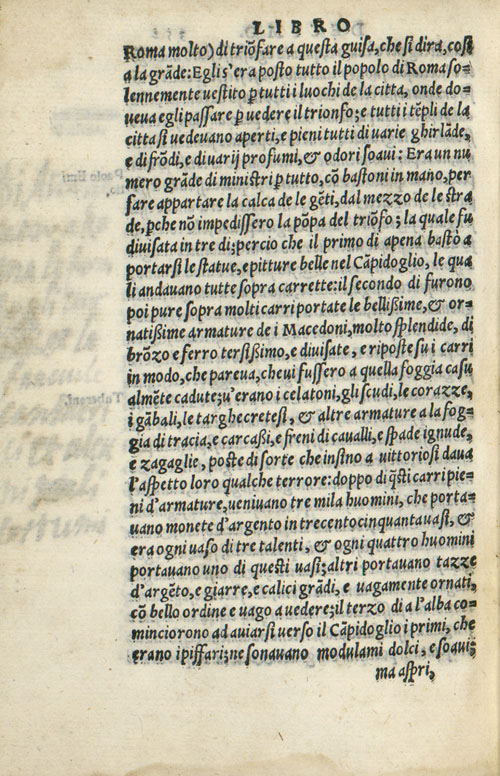 LIBRO
Roma molto) di triõfare a questa guisa, che si dira, cosi
a la grãde: Egli s'era posto tutto il popolo di Roma so-
lennemente uestito ꝑ tutti i luochi de la citta, onde do-
ueua egli passare ꝑ uedere il trionfo; e tutti i tẽpli de la
citta si uedeuano aperti, e pieni tutti di uarie ghirlãde,
e di frõdi, e di uarij profumi, & odori soaui: Era un nu
mero grãde di ministri ꝑ tutto, cõ bastoni in mano, per
fare appartare la calca de le gẽti, dal mezzo de le stra
de, ꝑche nõ impedissero la põpa del triõfo; la quale fu
diuisata in tre di; percio che il primo di apena bastò a
portarsi le statue, e pitture belle nel Cãpidoglio, le qua
li andauano tutte sopra carrette: il secondo di furono
poi pure sopra molti carri portate le bellißime, & or-
natißime armature de i Macedoni, molto splendide, di
brõzo e ferro tersißimo, e diuisate, e riposte su i carri
in modo, che pareua, che ui fussero a quella foggia casu
almẽte cadute; u'erano i celatoni, gli scudi, le corazze,
i gãbali, le targhe cretesi, & altre armature a la fog-
gia di tracia, e carcaßi, e freni di caualli, e spade ignude,
e zagaglie, poste di sorte che insino a uittoriosi daua
l'aspetto loro qualche terrore: doppo di q̃sti carri pie-
ni d'armature, ueniuano tre mila huomini, che porta-
uano monete d'argento in trecentocinquanta uasi, &
era ogni uaso di tre talenti, & ogni quattro huomini
portauano uno di questi uasi; altri portauano tazze
d'argẽto, e giarre, e calici grãdi, e uagamente ornati,
cõ bello ordine e uago a uedere; il terzo di a l'alba co-
minciorono ad auiarsi uerso il Cãpidoglio i primi, che
erano i piffari; ne sonauano modulami dolci, e soaui;
ma aspri,